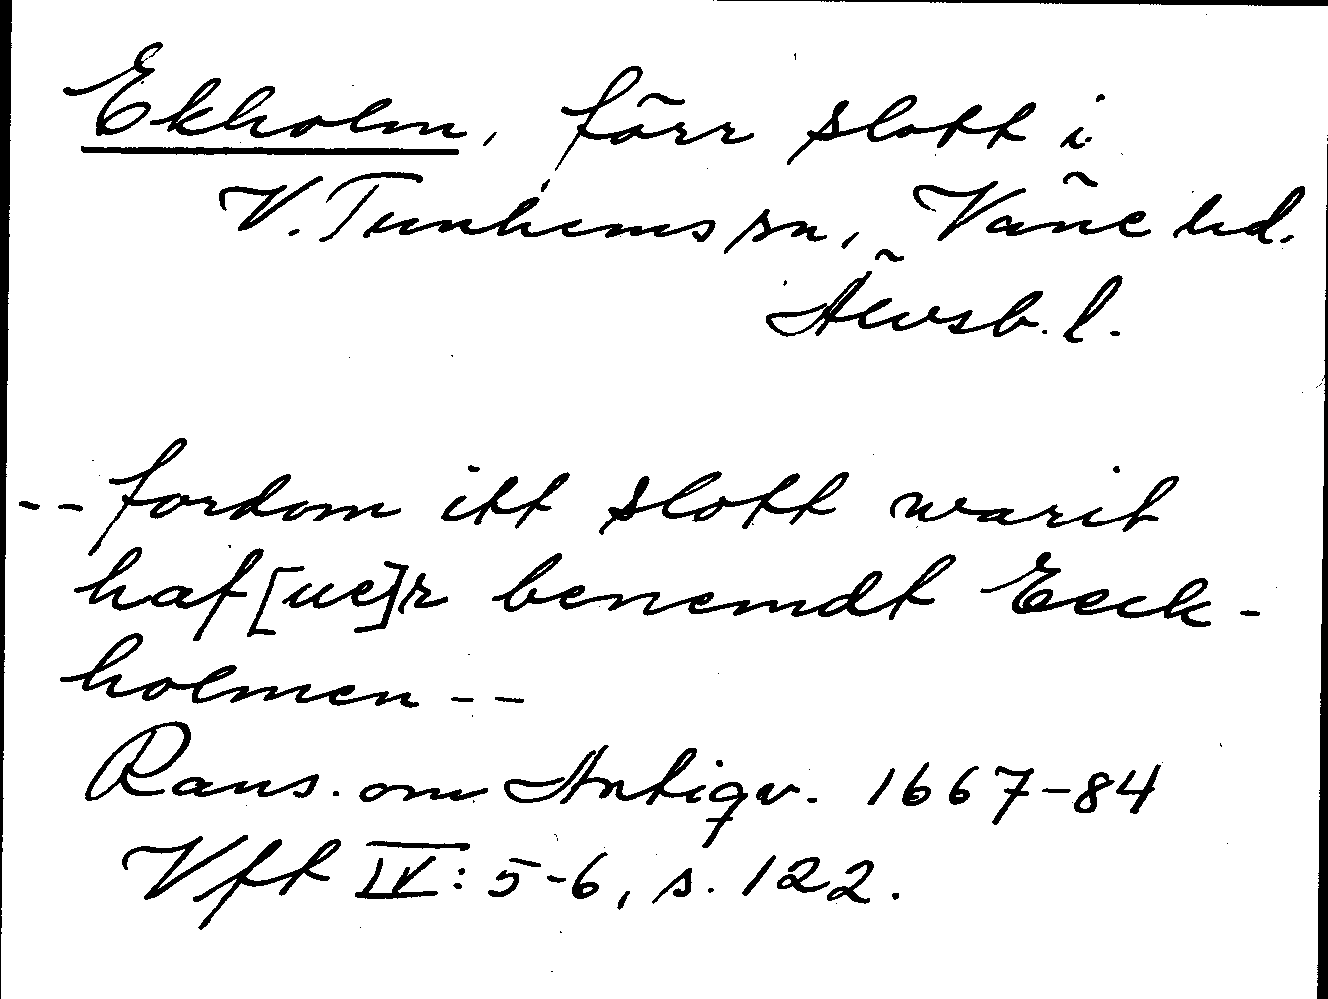 Ekholm, förr slott i
V. Tunhems sn, Väne hd.
Älvsb. l.
-- fordom itt slott warit
haf[ue]r benemdt Eeck-
holmen --
Rans. om Antiqv. 1667-84
Vft IV: 5-6, s. 122.